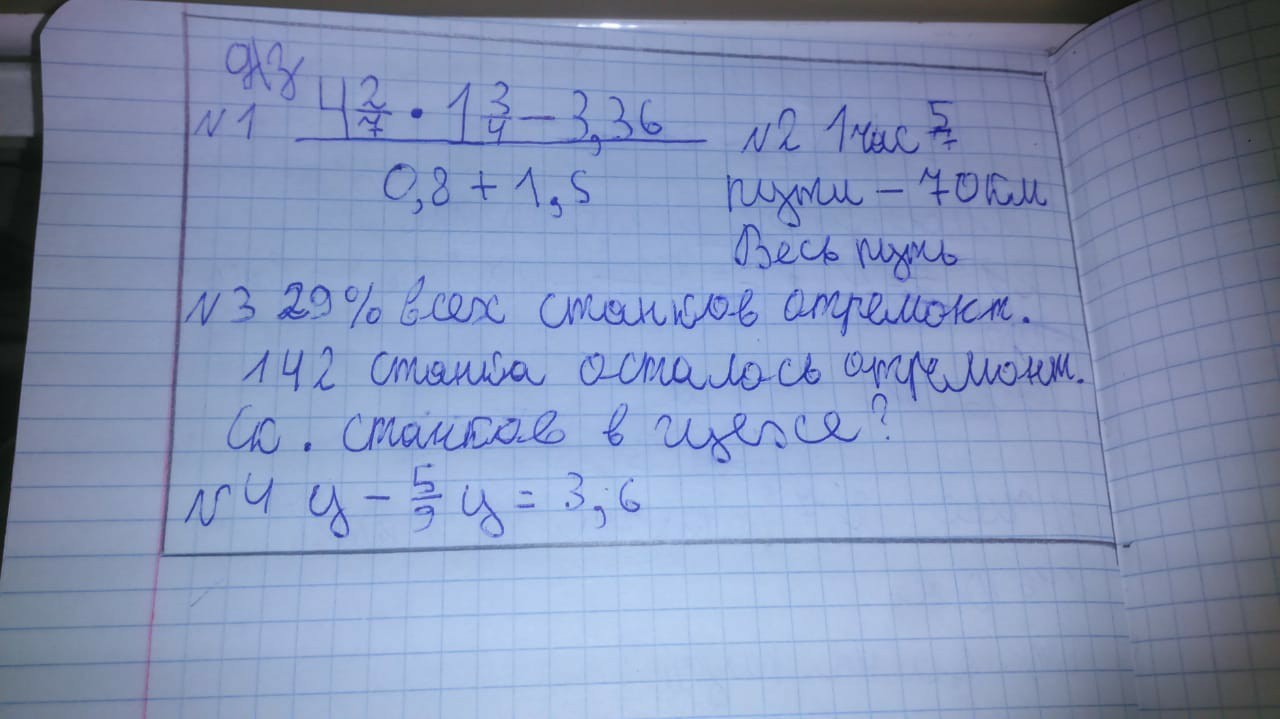 д/з
№1 4 2/7 · 1 3/4 − 3,36
0,8 + 1,5
№2 1 час 5/7
пути – 70 км
Весь путь
№3 29% всех станков отремонт.
142 станка осталось отремонт.
Ск. станков в цехе?
№4 y − 5/9 y = 3,6